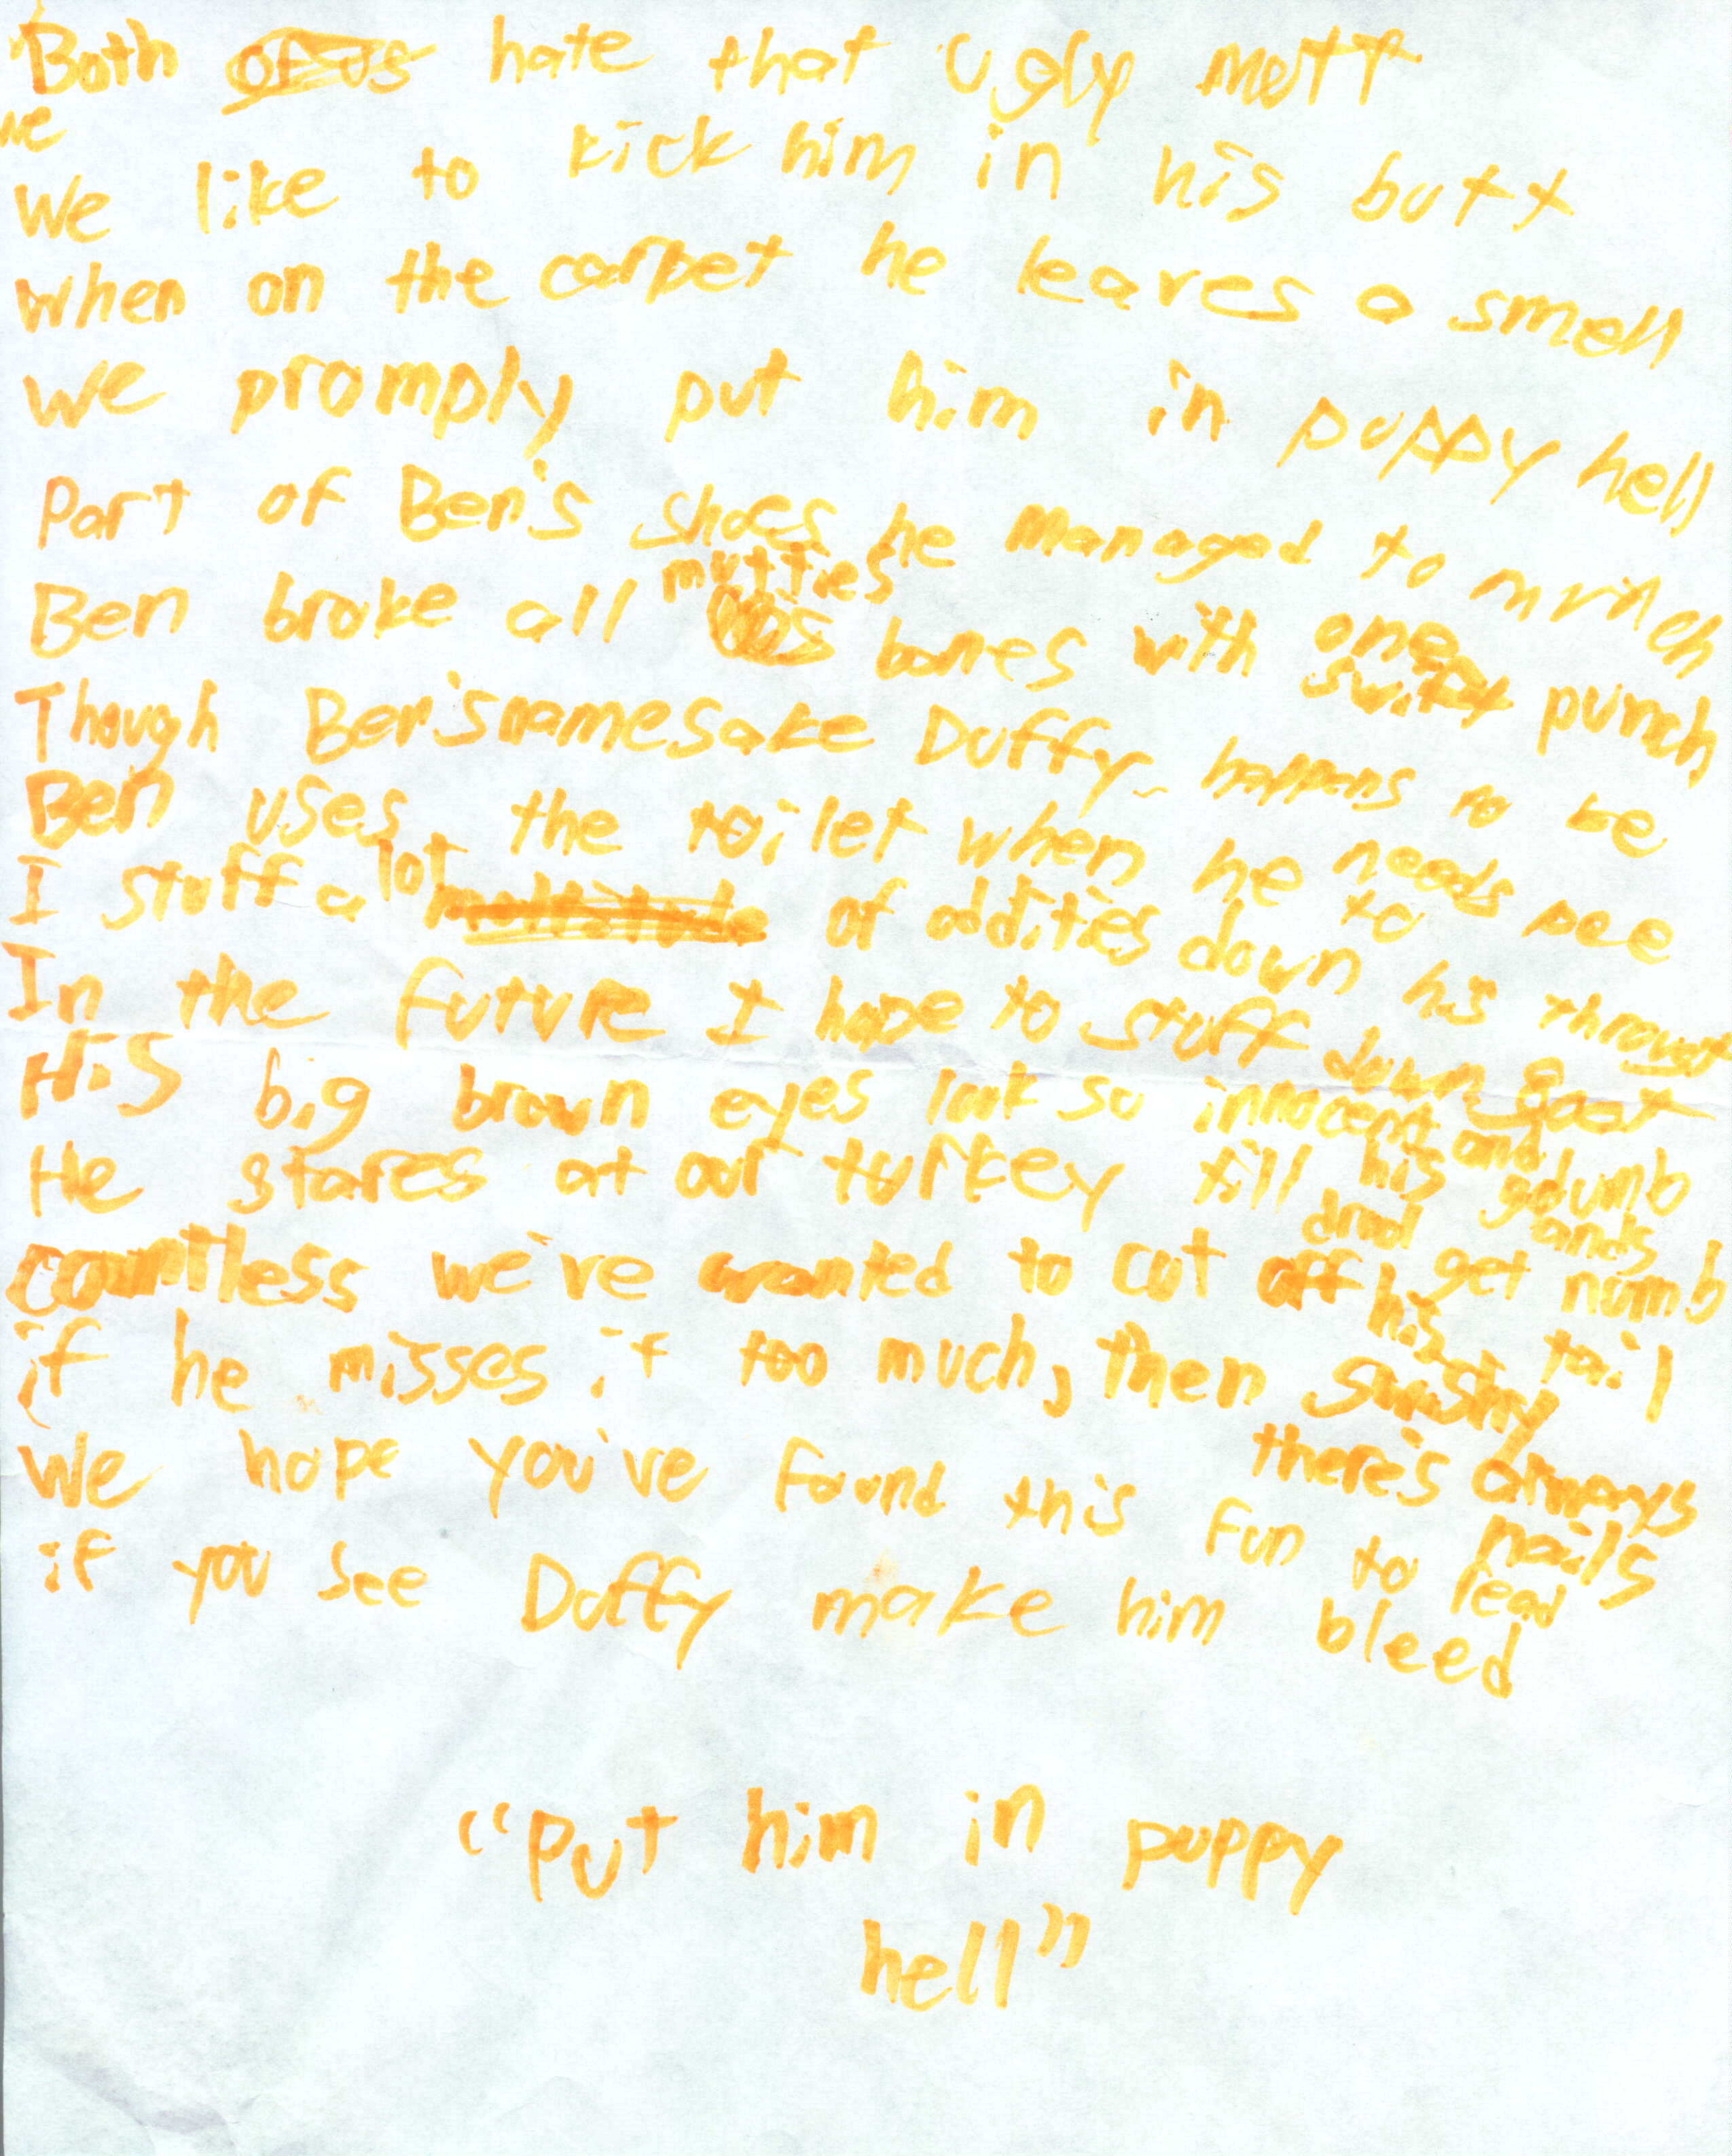 Both of us hate that ugly mutt
we
We like to kick him in his butt
When on the carpet he leaves a smell
We promply put him in puppy hell
Part of Ben's shoes he managed to munch
Ben broke all mutties bones with one swift punch
Though Ben's namesake Duffy happens to be
Ben uses the toilet when he needs to pee
I stuff a lot multitude of oddities down his throat
In the future I hope to stuff down goat
His big brown eyes look so innocent and dumb
He stares at our turkey till his glands get numb
countless we've wanted to cut off his tail
if he misses it too much, then there's always nails
We hope you've found this fun to read
if you see Duffy make him bleed
"Put him in puppy
hell"